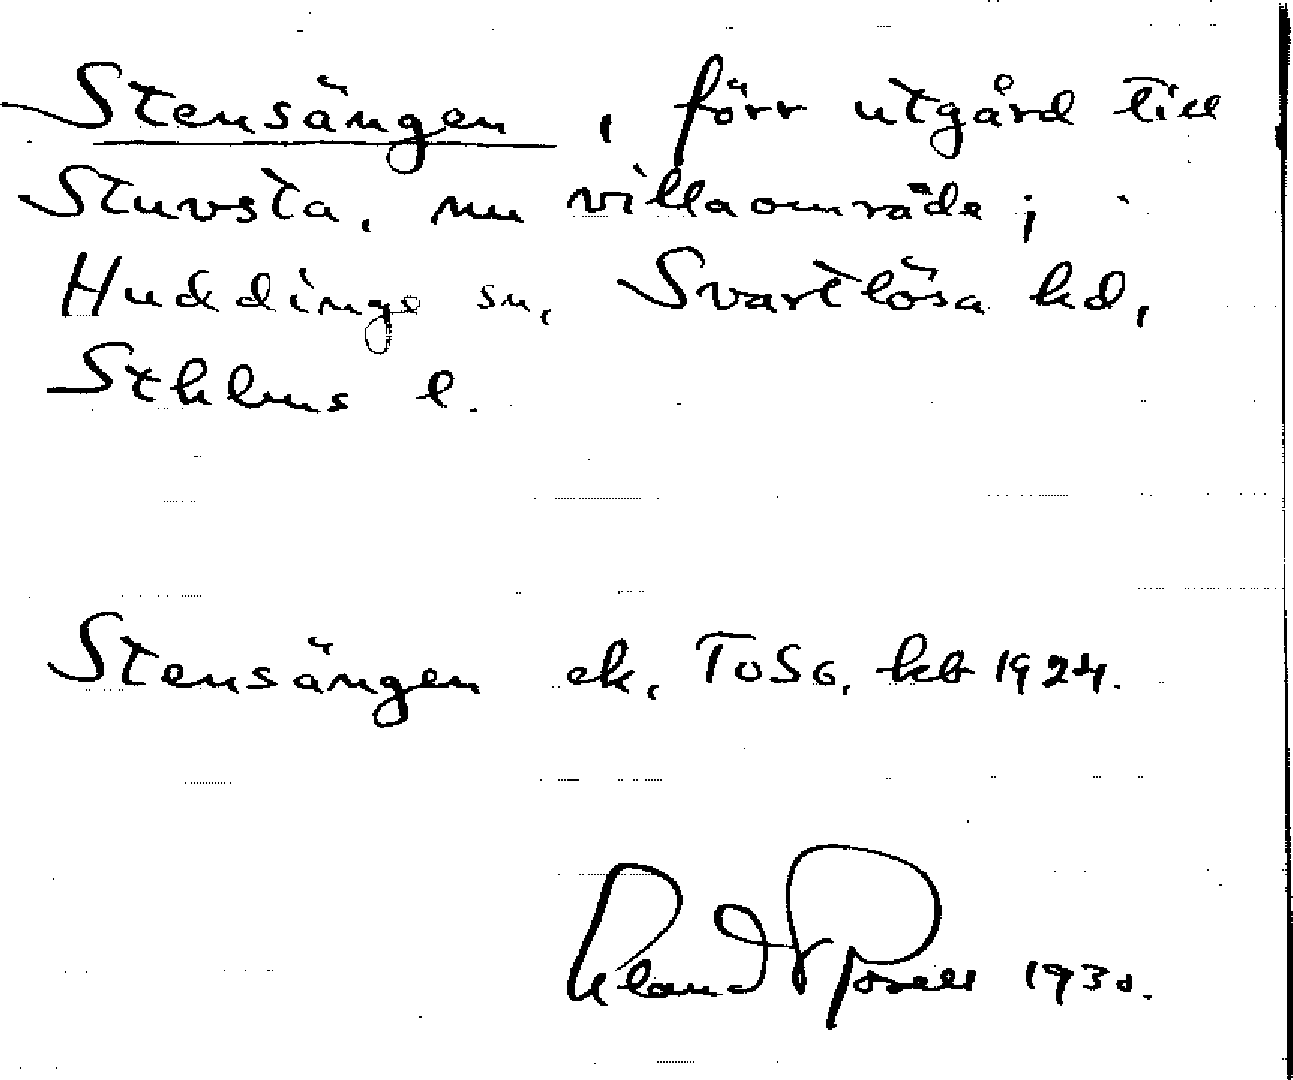 Stensängen, förr utgård till
Stuvsta, nu villaområde;
Huddinge sn, Svartlösa hd,
Sthlms l.
Stensängen ek, ToSG, kb 1924.
1930.